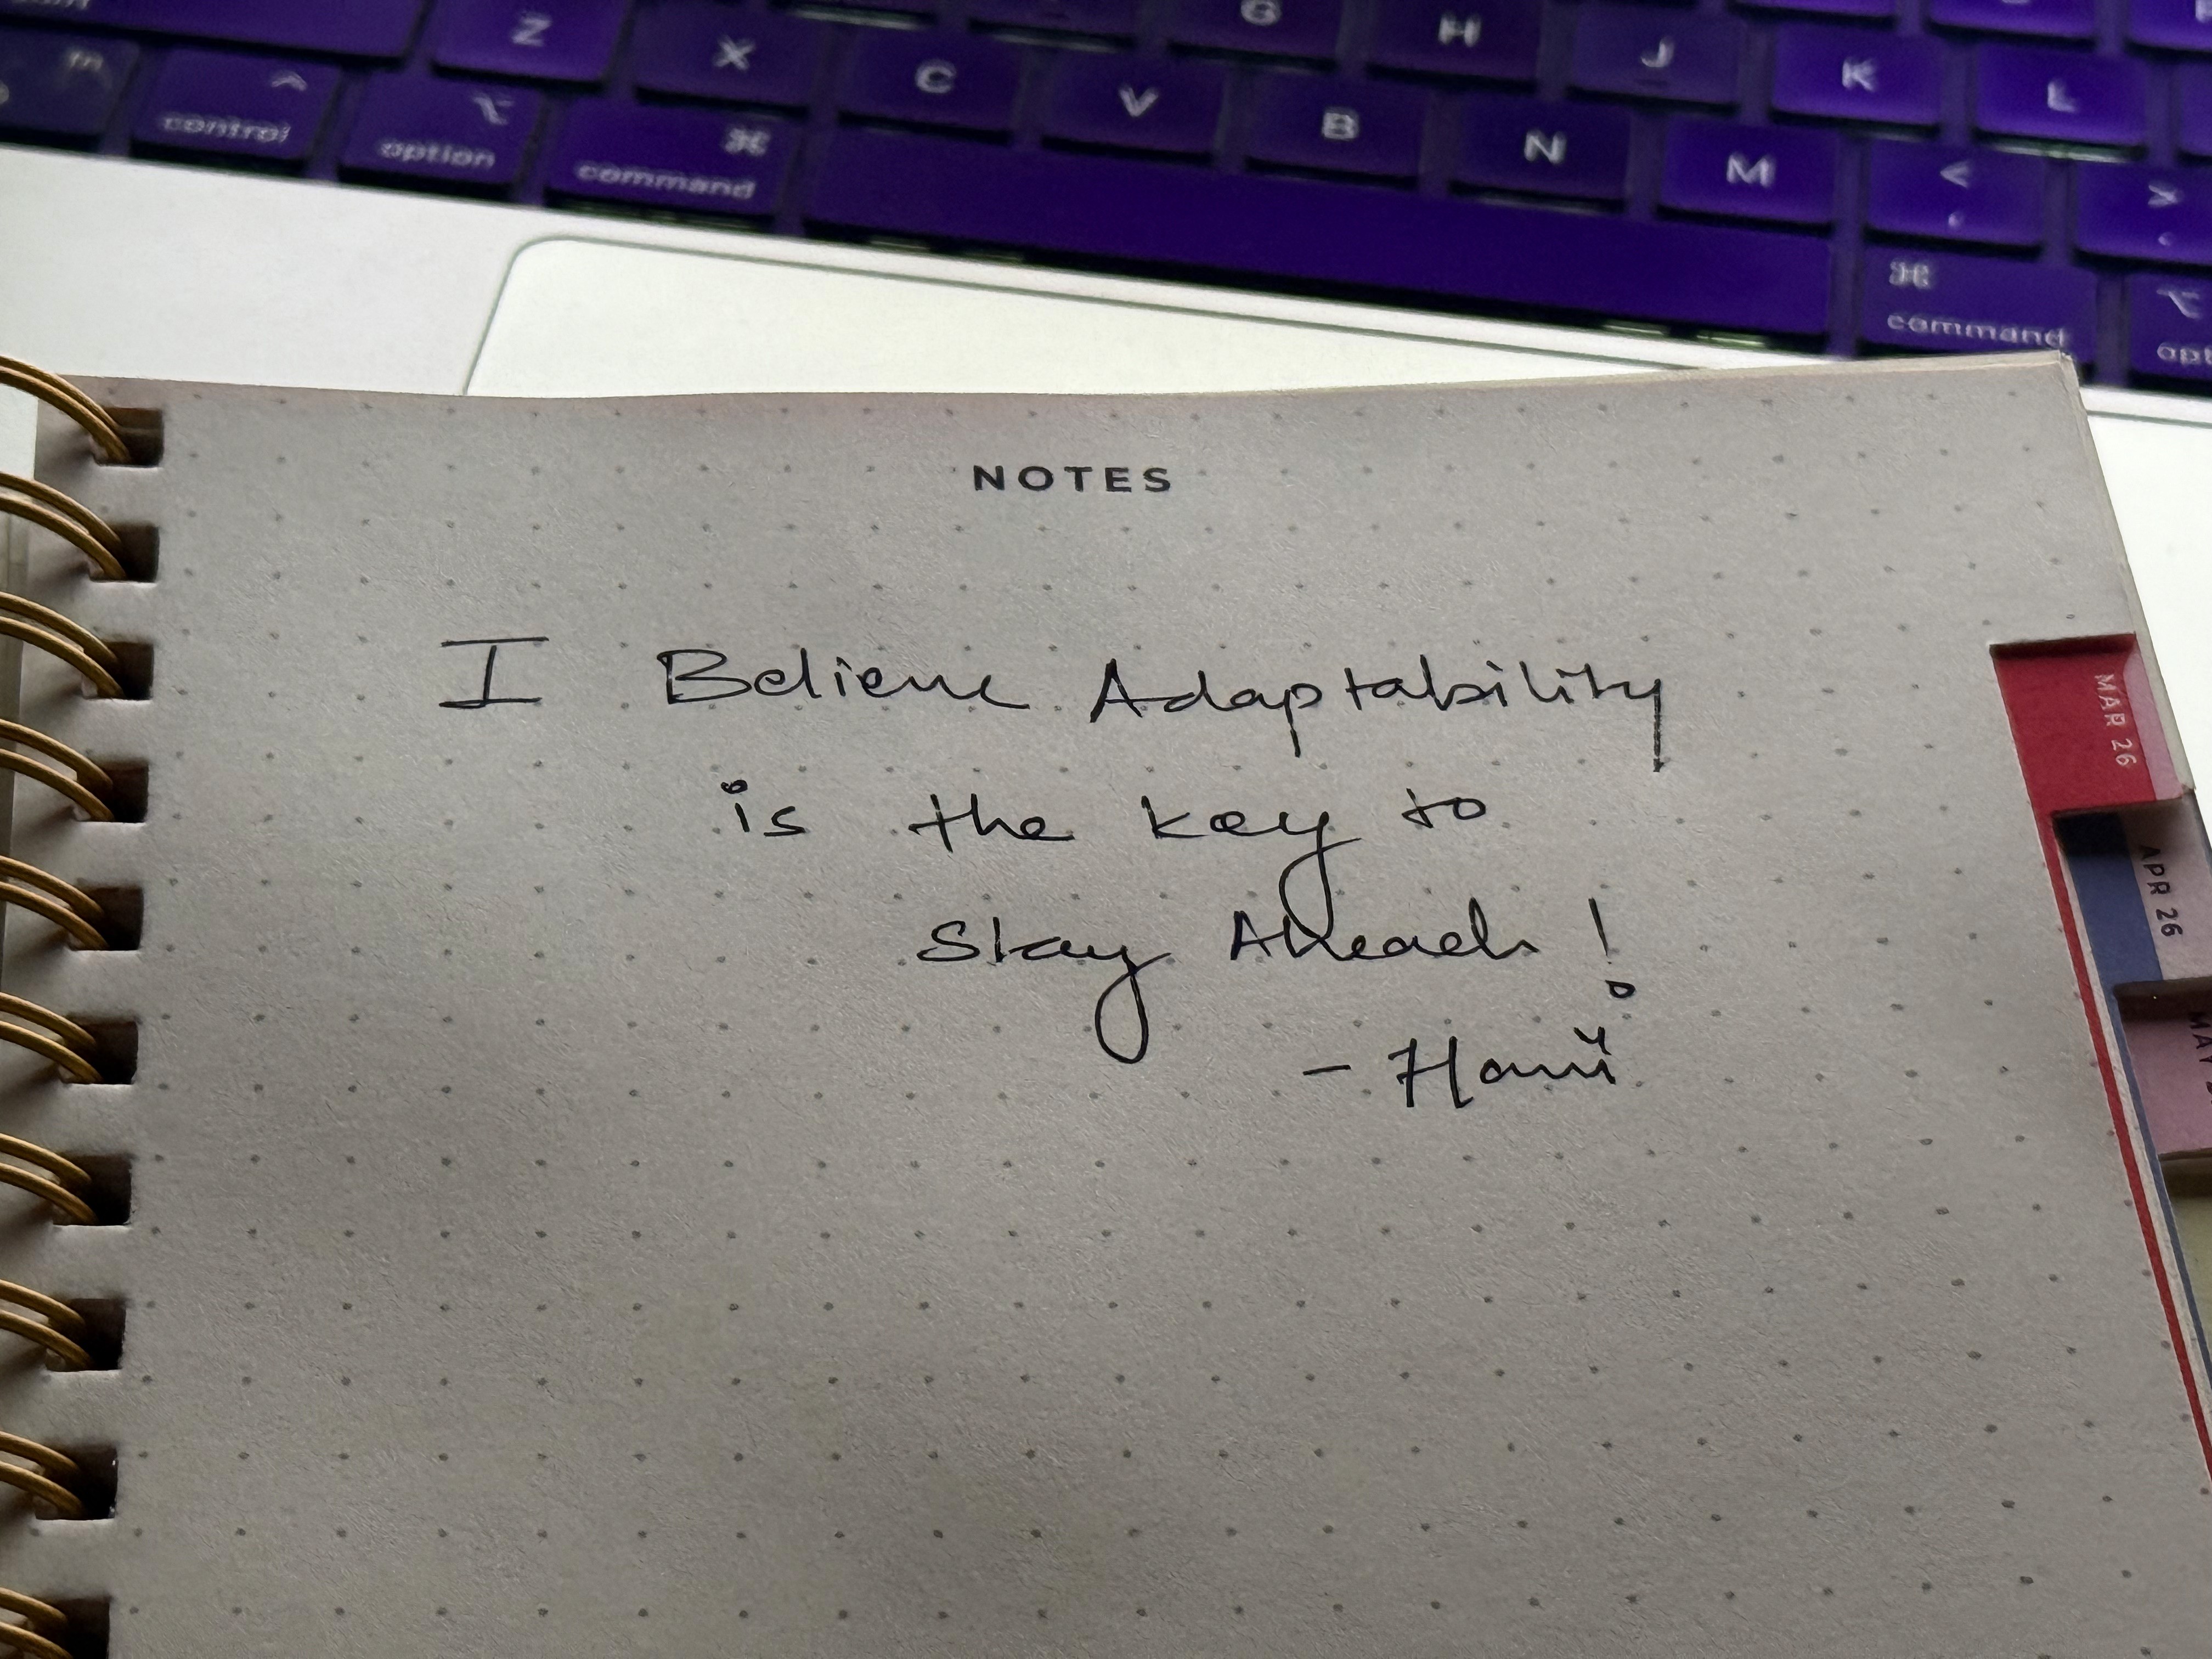 Z X C V B N M G H J K L
< >
control option command command
NOTES
I Believe Adaptability
is the key to
Stay Ahead!
MAR 26
APR 26